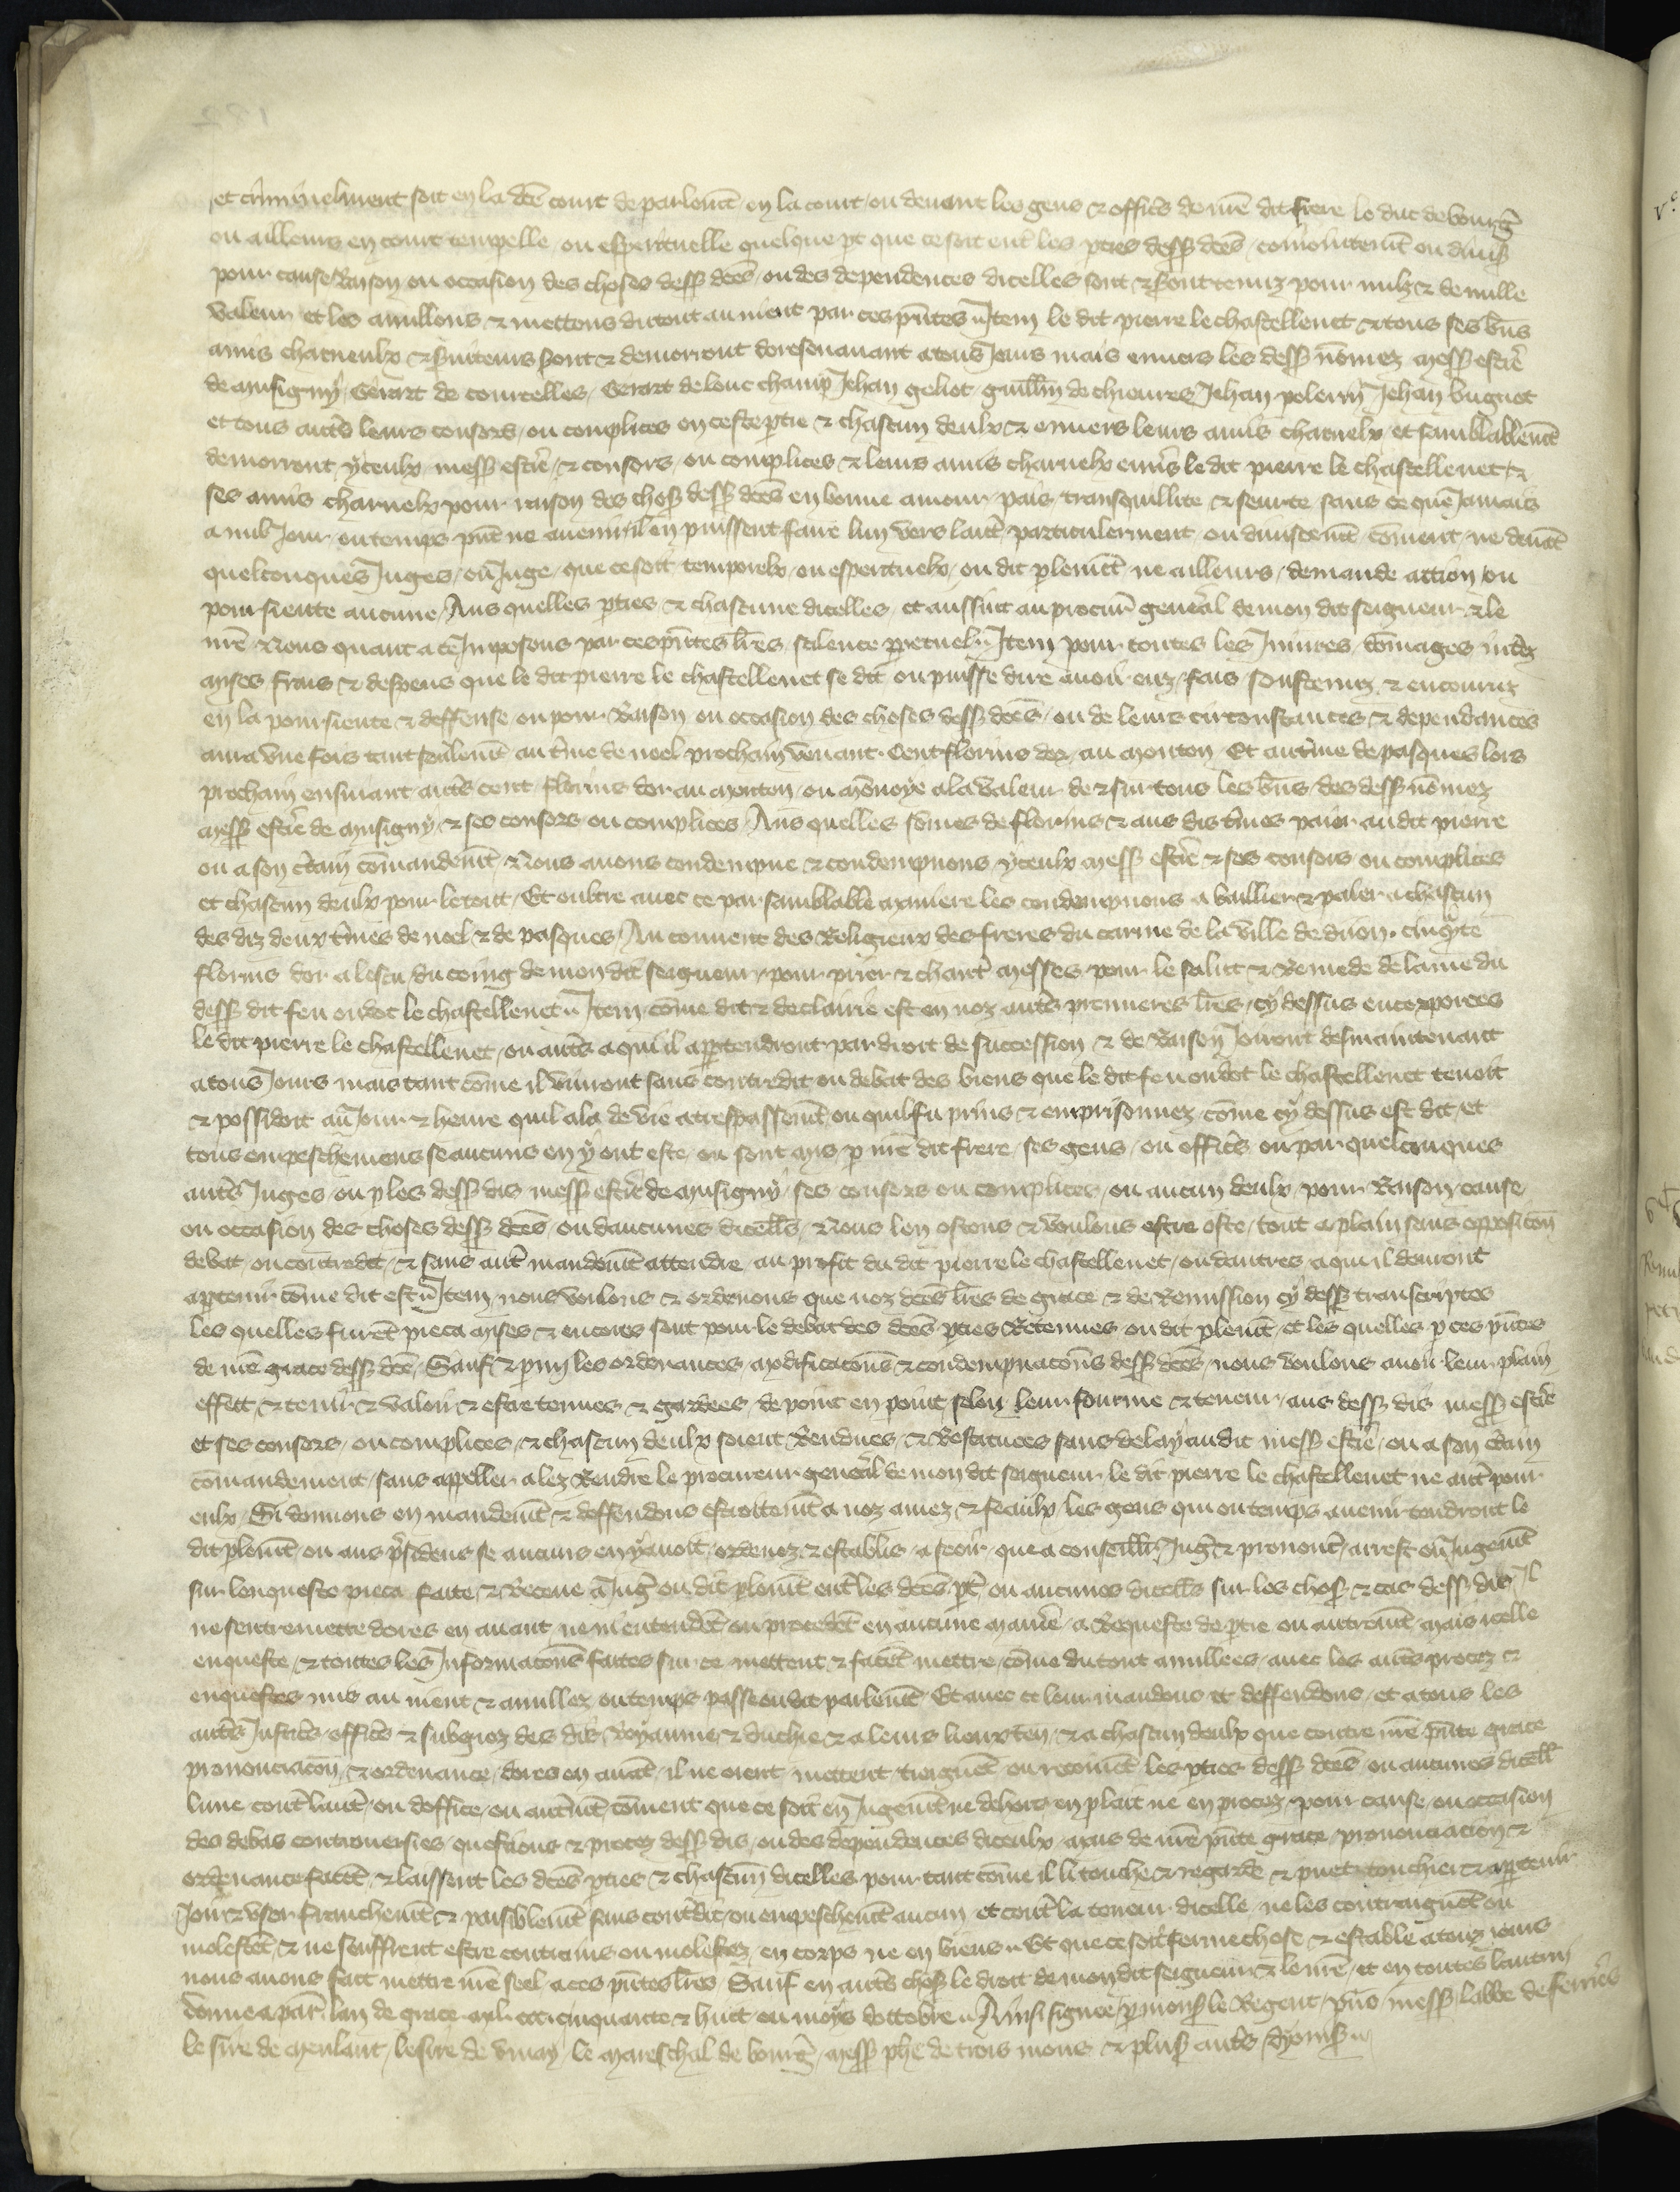 et criminelment soit en la dcē court de parlemt̄ en la court ou deuant les gens & officrs̄ de nrē dit frere le duc de bourḡ
ou ailleurs en court temporelle ou esperituelle quelque pt que ce soit entr̄ les pties dessꝰ dcēs coniointemt̄ ou diuisꝰ
pour cause Raison ou occasion des choses dessꝰ dcēs ou des dependences dicelles soit & soient tenuz pour nulz & de nulle
valeur et les anullons & mettons du tout au nient par ces pn̄tes Item le dit pierre le chastellenet & tous ses bn̄s
amis charneulx & seruiteurs sont & demorront doresenauant a tous Iours mais enuers les dessꝰ nōmez messꝰ estiē
de musigny Gerart de courcelles Gerart de lonc champ Iehan geliot guillm̄ de chieures Iehan polein Iehan buguot
et tous autrs̄ leurs consors ou complices en ceste ptie & chascun deulx & enuers leurs amis charnelx et samblablemt̄
demorront yceulx messꝰ estiē & consors ou complices & leurs amis charnelx enuers le dit pierre le chastellenet &
ses amis charnelx pour raison des chosꝰ dessꝰ dcēs en bonne amour pais transquillite & seurte sans ce que Iamais
a nul Iour ou temps pn̄t ne auenir il en puissent faire lun vers lautr̄ particulerment ou diuisemt̄ cōment ne deuāt
quelconques Iuges ou Iuge que ce soit temporelx ou esperituelx ou dit plemt̄ ne ailleurs demande action ou
poursieute aucune Aus quelles pties & chascune dicelles et aussint au procur̄ general de mon dit seigneur & le
nrē Nous quant a ce Imposons par ces pn̄tes lrēs scilence ppetuel Item pour toutes les Iniures dōmages intrz̄
mises frais & despens que le dit pierre le chastellenet se dit ou puisse dire auoir euz fais soustenuz & encouruz
en la poursieute & deffense ou pour Raison ou occasion des choses dessꝰ dcēs ou de leurs circonstances & dependances
aura vne fois tant seulemt̄ au trm̄e de noel prochain venant Cent florins dor au mouton Et au trm̄e de pasques lors
prochain ensuiuant autrs̄ cent florins dor au mouton ou mōnoye a la valeur de & sur tous les bn̄s des dessꝰ nōmez
messꝰ estiē de musigny & ses consors ou complices Aus quelles sōmes de florins & aus dis trm̄es paier audit pierre
ou a son crtain cōmandemt̄ Nous auons condempne & condempnons yceulx messꝰ estiē & ses consors ou complices
et chascun deulx pour le tout Et oultre auec ce par samblable maniere les condempnons a baillier & paier a chascun
des diz deux trm̄es de noel & de pasques Au couuent des Religieux des freres du carme de la ville de diion cinqte
florins dor a lescu du coing de mon dit seigneur pour prier & chantr̄ messes pour le salut & Remede de lame du
dessꝰ dit feu oudot le chastellenet Item cōme dit & declairie est en noz autrs̄ premieres lrēs cy dessus encorporees
le dit pierre le chastellenet ou autrs̄ a qui il appartendront par droit de succession & de Raison Iouront desmaintenant
a tous Iours mais tant cōme il viuront sans contredit ou debat des biens que le dit feu oudot le chastellenet tenoit
& possidoit au Iour & heure quil ala de vie a trespassemt̄ ou quil fu prins & emprisonnez cōme cy dessus est dit et
tous empeschemens se aucuns en y ont este ou sont mis p nrē dit frere ses gens ou officrs̄ ou par quelconques
autrs̄ Iuges ou p les dessꝰ dis messꝰ estiē de musigny ses consors ou complices ou aucun deulx pour Raison cause
ou occasion des choses dessꝰ dcēs ou daucunes dicelles Nous len ostons & voulons estre oste tout a plain sans oppositoṅ
debat ou contredit & sans autr̄ mandemt̄ attendre au profit du dit pierre le chastellenet ou dautres a qui il deuront
aptenir cōme dit est Item nous voulons & ordenons que noz dcēs lrēs de grace & de Remission cy dessꝰ transcriptes
les quelles furent pieca mises & encores sont pour le debat des dcēs pties Retenues ou dit plemt̄ et les quelles p ces pn̄tes
de nrē grace dessꝰ dcē Sauf & parmi les ordenances modificatoṅs & condempnatoṅs dessꝰ dcēs nous voulons auoir leur plain
effect & tenir & valoir & estre tenues & gardees de point en point selon leur fourme & teneur aus dessꝰ dis messꝰ estiē
et ses consors ou complices & chascun deulx soient Rendues & Restatuees sans delay audit messꝰ estiē ou a son crtain
cōmandement sans appeller a lez Rendre le procureur general de mon dit seigneur le dit pierre le chastellenet ne autr̄ pour
eulx Si donnons en mandemt̄ & deffendons estroittemt̄ a noz amez & feaulx les gens qui ou temps auenir tendront le
dit plemt̄ ou aus prsidens se aucuns en y auoit ordenez & establis a sceoir que a conseillr̄ Iugr̄ & prononcr̄ arrest ou Iugemt̄
sur lenqueste pieca faite & Receue a Iugr̄ ou dit plemt̄ entr̄ les dcēs pt̄ ou aucunes dicelles sur les chosꝰ & cas dessꝰ dis Il
ne sentremettre dores en auant ne ni entendēt ou procedēt en aucune manrē a Requeste de ptie ou autremt̄ mais icelle
enqueste & toutes les Informacoṅs faites sur ce mettent & facēt mettre cōme du tout anullees auec les autrs̄ procez &
enquestes mis au nient & anullez ou temps passe oudit parlemt̄ Et auec ce leur mandons et deffendons et a tous les
autrs̄ Iusticrs̄ officrs̄ & subgiez des dis Royaume & duchie & a leurs lieuxten̄ & a chascun deulx que contre nrē pn̄te grace
prononciacoṅ & ordenance dores en auāt il ne oient mettent treignēt ou recoiuēt les pties dessꝰ dcēs ou aucunes dicell̄
lune contr̄ lautr̄ ou doffice ou autremt̄ cōment que ce soit en Iugemt̄ ne dehors en plait ne en procez pour cause ou occasion
des debas controuersies questions & procez dessꝰ dis ou des dependences diceulx mais de nrē pn̄te grace prononciacion &
ordenance facēt & laissent les dcēs pties & chascun dicelles pour tant cōme il li touche & regarde & puet touchier & aptenir
Ioir & vser franchemt̄ & paisiblemt̄ sans contredit ou empeschemt̄ aucun et contr̄ la teneur dicelle ne les contraignēt ou
molestēt & ne seuffrent estre contrains ou molestez en corps ne en biens Et que ce soit ferme chose & estable a touz iours
nous auons fait mettre nrē seel a ces pn̄tes lrēs Sauf en autrs̄ chosꝰ le droit de mon dit seigneur & le nrē et en toutes lautrui
donne a par̄ lan de grace mil ccc cinquante & huit ou moys doctobre Ainsi signee p monsꝰ le Regent pn̄s messꝰ labbe de ferrieres
le sire de meulant le sire de vinay le mareschal de bourḡ messꝰ phē de trois mons & plusꝰ autrs̄ dyonisꝰ